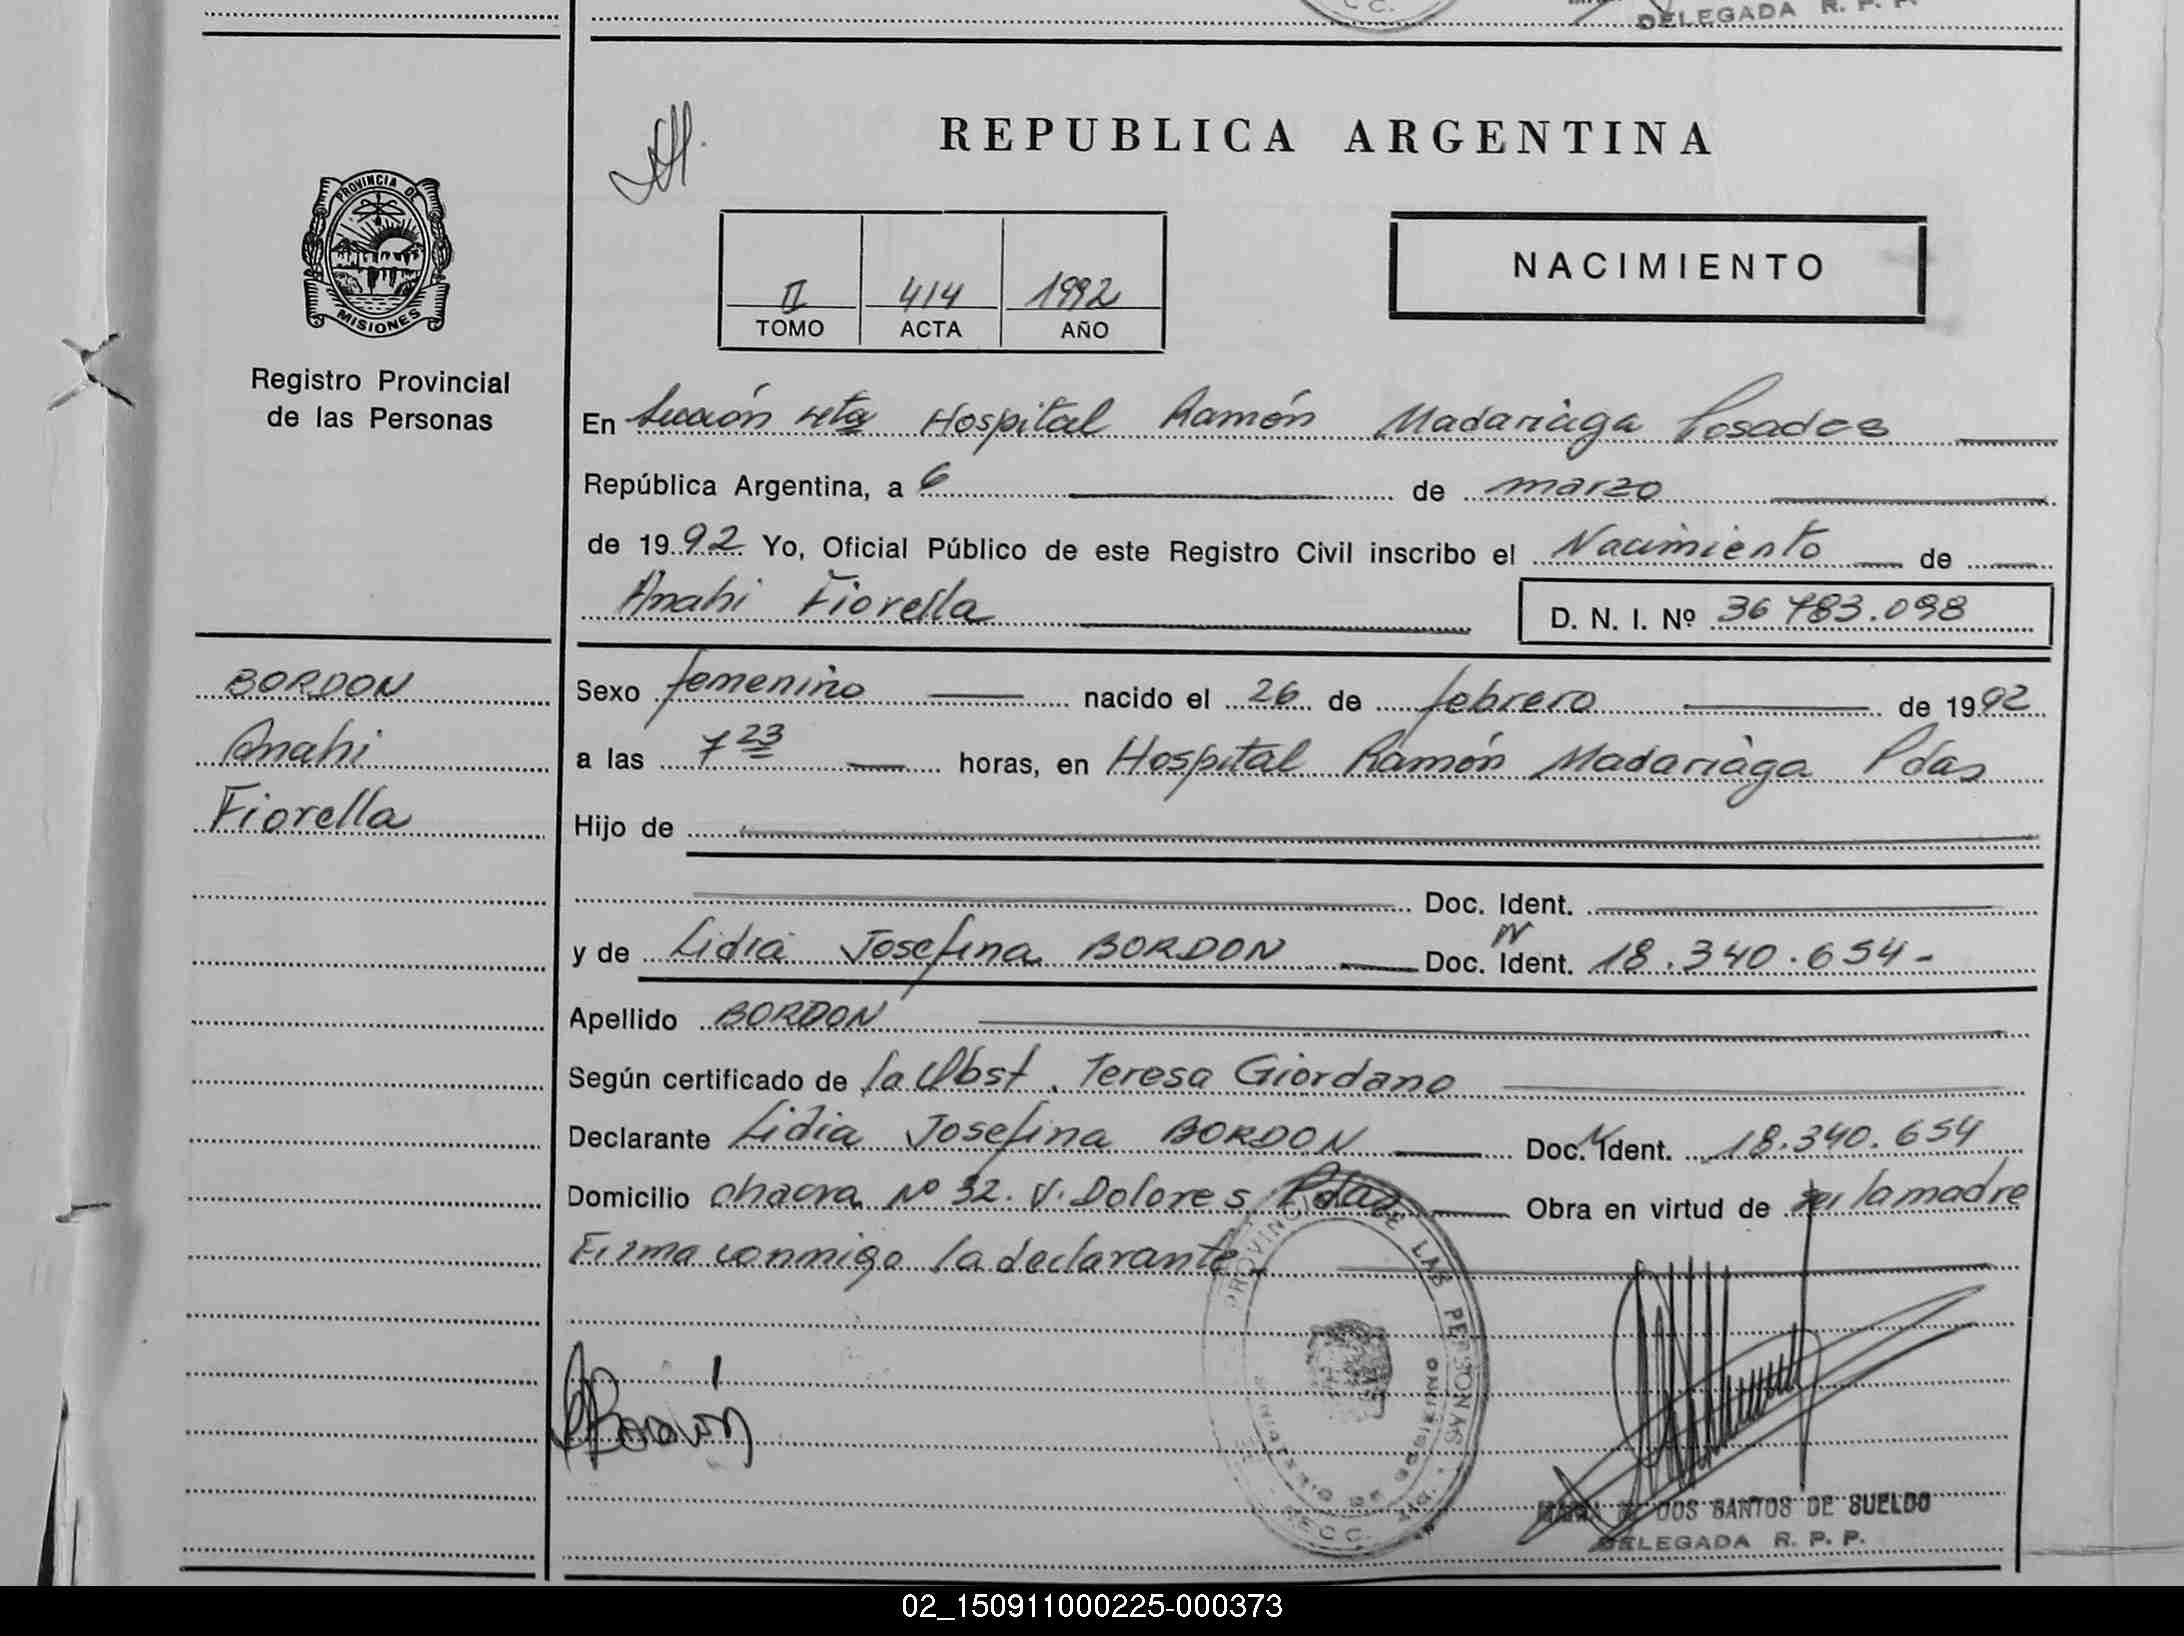 DELEGADA R. P. P.
REPUBLICA ARGENTINA
PROVINCIA DE
MISIONES
Registro Provincial
de las Personas
II 414 1992
TOMO ACTA AÑO
NACIMIENTO
En Sección 4ta Hospital Ramón Madariaga Posadas
República Argentina, a 6 de marzo
de 1992 Yo, Oficial Público de este Registro Civil inscribo el Nacimiento de
Anahi Fiorella D. N. I. Nº 36 783.098
BORDON
Anahi
Fiorella
Sexo femenino nacido el 26 de febrero de 1992
a las 7 23 horas, en Hospital Ramón Madariaga Pdas
Hijo de
Doc. Ident.
y de Lidia Josefina BORDON Doc. Ident. 18.340.654-
Apellido BORDON
Según certificado de la Obst. Teresa Giordano
Declarante Lidia Josefina BORDON Doc. Ident. 18.340.654
Domicilio chacra Nº 32. V. Dolores Pdas Obra en virtud de ser la madre
Firma conmigo la declarante
PROVINCIAL DE LAS PERSONAS
MINISTERIO DE GOBIERNO
DOS SANTOS DE SUELDO
DELEGADA R. P. P.
02_150911000225-000373